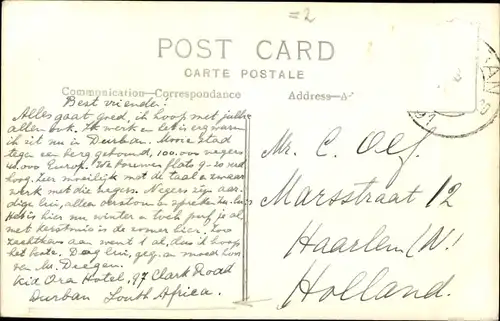 =2
POST CARD
CARTE POSTALE
Communication—Correspondance
Address—A
Best vrienden!
Alles gaat goed, ik hoop met jullie
allen ook. Ik werk en het is erg warm
ik zit nu in Durban. Mooie stad
tegen een berg gebouwd, 100.000 negers
40.000 Europ. We bouwen flats 9-20 
hoog. Zeer moeilijk met de taal en zwaar
werk met die negers. Negers zijn aar-
dige lui, alleen verstom en spreken
Het is hier nu winter en toch perf, je al
met kerstmis is de zomer hier. Zoo
zachtkens aan went 1 al, dus ik hoop
het beste. Dag lui, geg. en moed hoor
van Mr. Diegen.
Kid Ora Hotel, 97 Clark Road
Durban South Africa.
Mr. C. Oly.
Marsstraat 12
Haarlem (N.)
Holland.